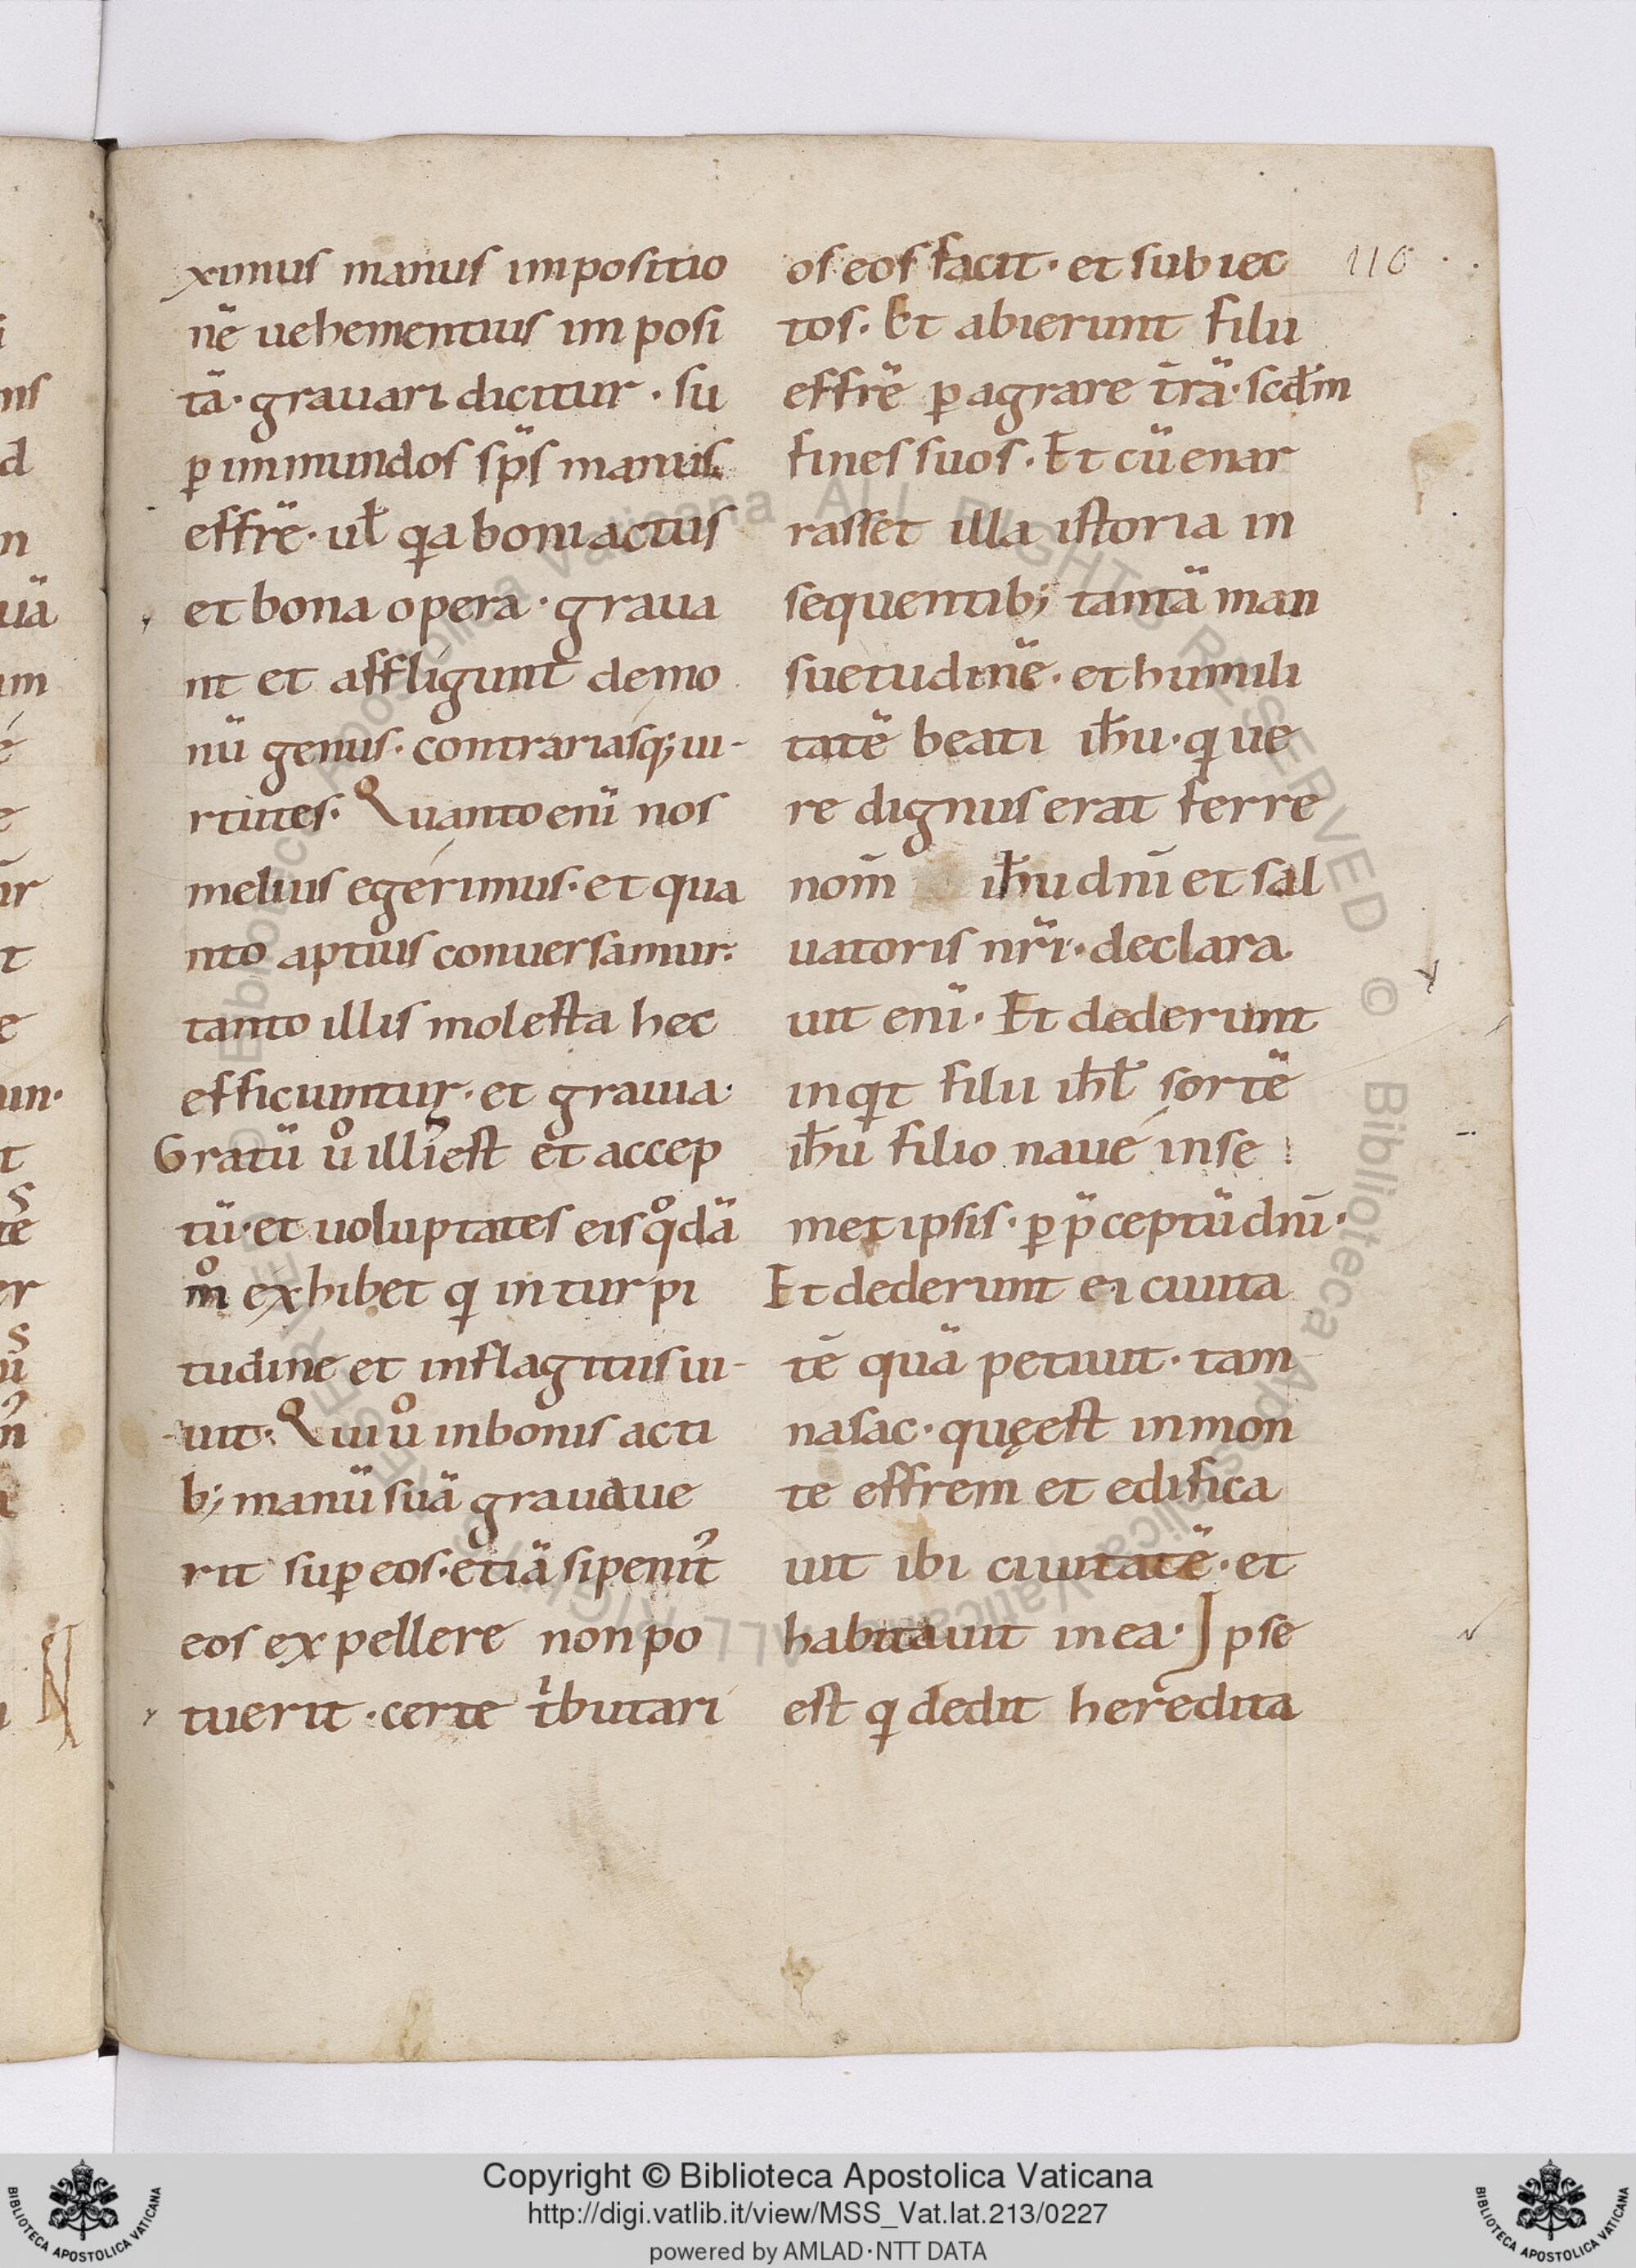 ximus manus impositio
nē uehementius imposi
tā· grauari dicitur· su
ꝑ immundos sp̄s manus
effrē· ul̄ qa boni actus
et bona opera· graua
nt et affligunt demo
nū genus· contrariasq; ui-
rtutes· Quanto enī nos
melius egerimus· et qua
nto aptius conuersamur·
tanto illis molesta hec
efficiuntur· et grauia·
Gratū uͦ illī est et accep
tū· et uoluptates eis qͦdā
mͦ exhibet q in turpi
tudine et in flagitiis ui-
uit· Qui uͦ in bonis acti
b; manū suā grauaue
rit suꝑ eos· etiā si penit᷒
eos expellere non po
tuerit· certe tⁱbutari
os eos facit· et subiec
tos· Et abierunt filii
effrē ꝑagrare t̄rā· scdm̄
fines suos· Et cū enar
rasset illa istoria in
sequentib; tantā man
suetudinē· et humili
tatē beati ih̄u· q ue
re dignus erat ferre
nom̄ ih̄u dn̄i et sal
uatoris nr̄i· declara
uit enī· Et dederunt
inqt filii ih̄l sortē
ih̄u filio naue in se
metipsis· ꝑ p̄ceptū dn̄i·
Et dederunt ei ciuita
tē quā petiuit· tam
nasac· quę est in mon
te effrem et edifica
uit ibi ciuitatē· et
habitauit in ea· Ipse
est q dedit heredita
116
Copyright © Biblioteca Apostolica Vaticana
http://digi.vatlib.it/view/MSS_Vat.lat.213/0227
powered by AMLAD·NTT DATA
BIBLIOTECA APOSTOLICA VATICANA
BIBLIOTECA APOSTOLICA VATICANA